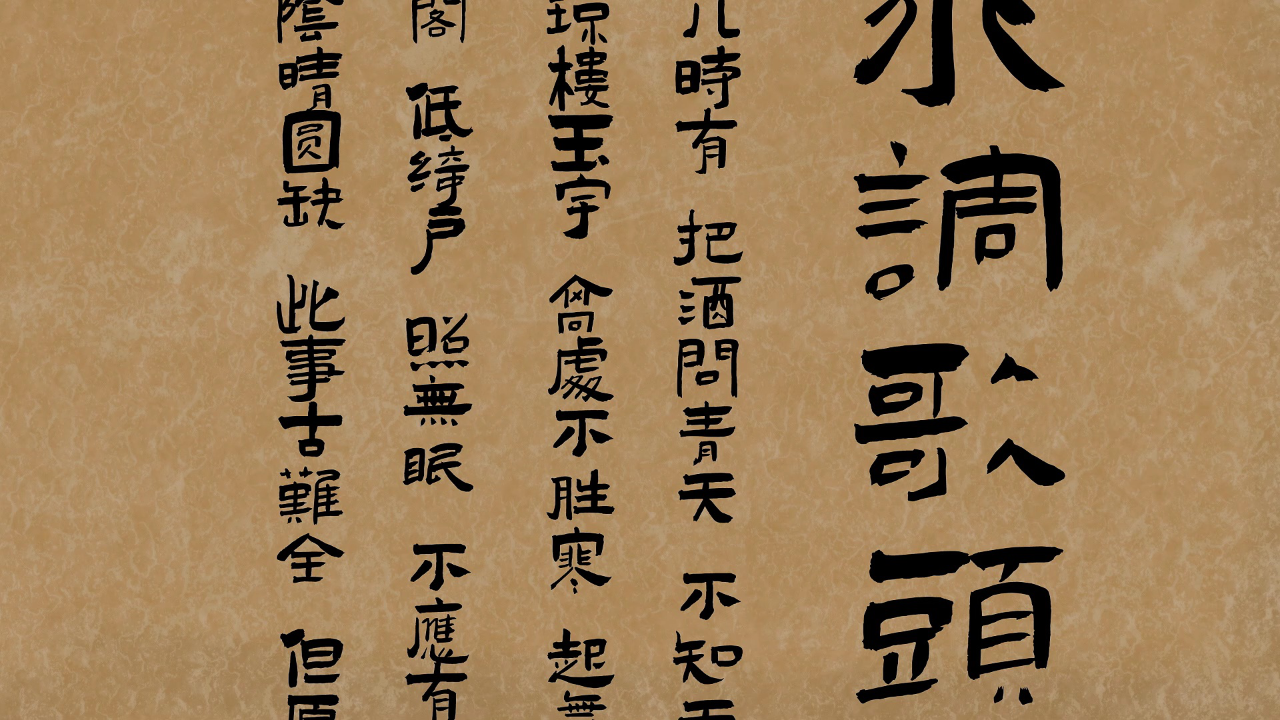 水調歌頭
几時有 把酒問青天 不知天
琼樓玉宇 高處不胜寒 起舞
閣 低绮户 照無眠 不應有
陰晴圓缺 此事古難全 但愿